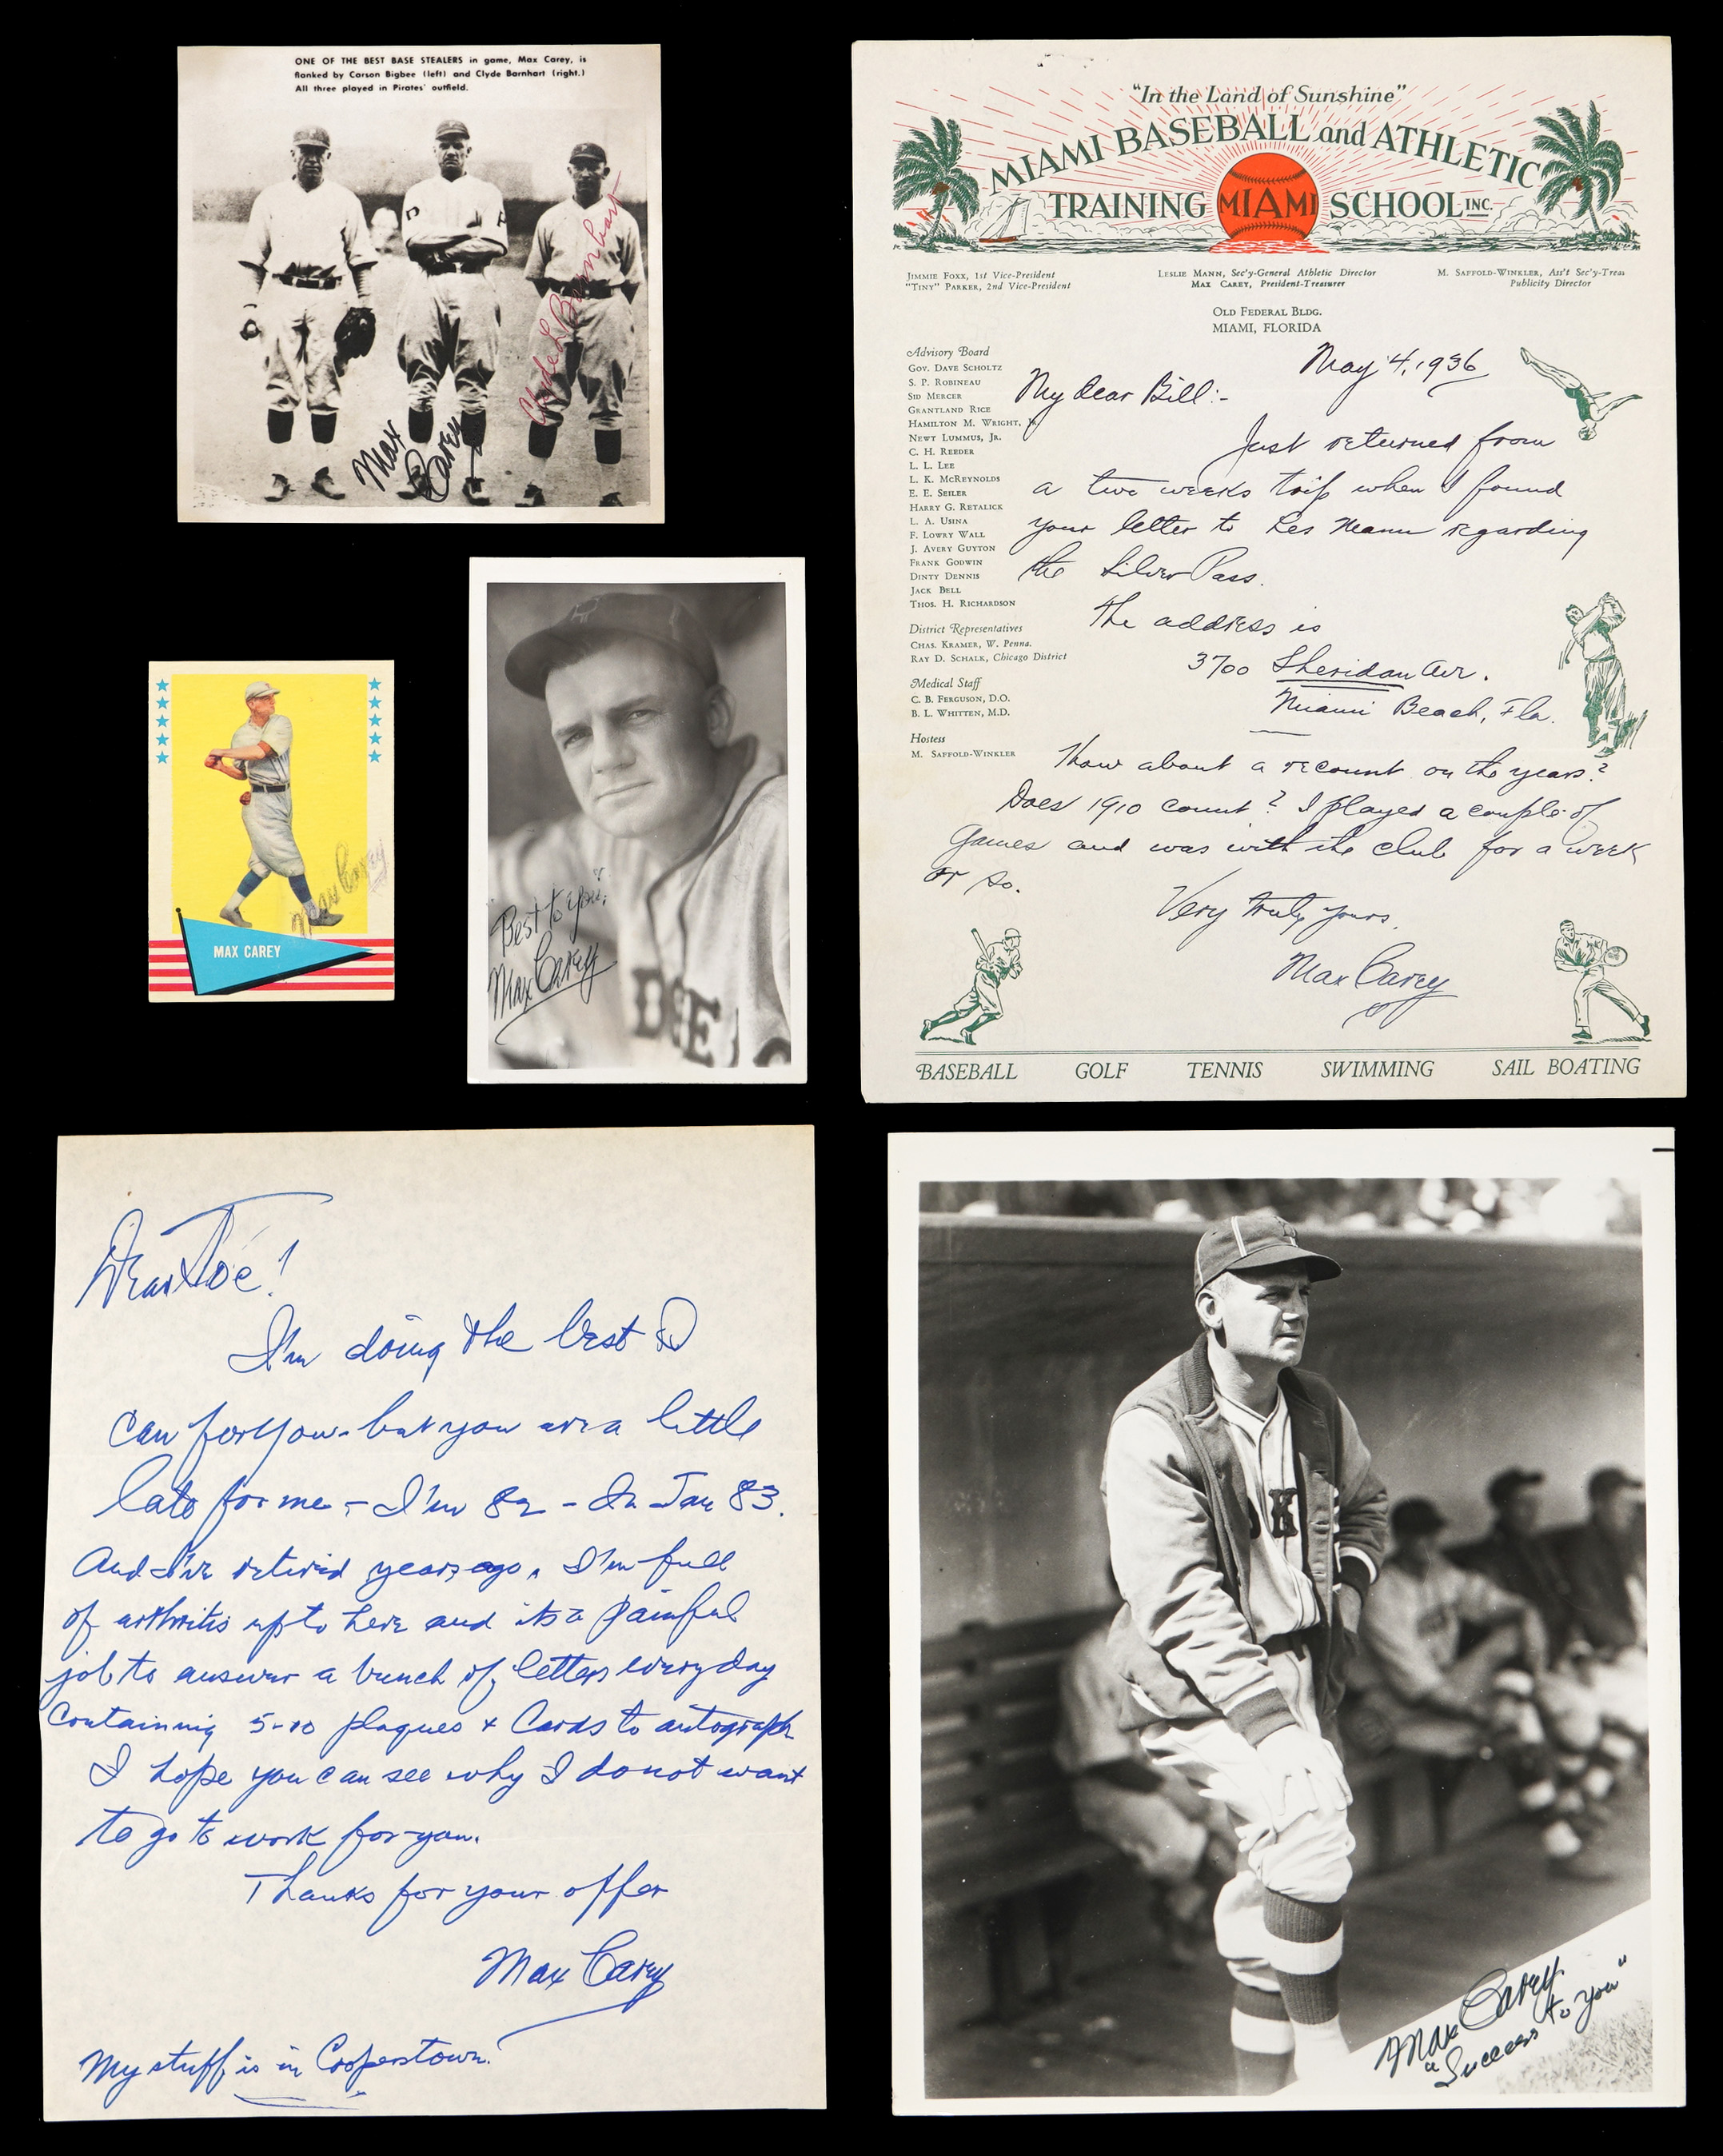 ONE OF THE BEST BASE STEALERS in game, Max Carey, is
flanked by Carson Bigbee (left) and Clyde Barnhart (right.)
All three played in Pirates' outfield.
P
Clyde L Barnhart
Max
Carey
MAX CAREY
Max Carey
Best to you.
Max Carey
"In the Land of Sunshine"
MIAMI BASEBALL and ATHLETIC
TRAINING MIAMI SCHOOL INC.
JIMMIE FOXX, 1st Vice-President
"TINY" PARKER, 2nd Vice-President
LESLIE MANN, Sec'y-General Athletic Director
MAX CAREY, President-Treasurer
M. SAFFOLD-WINKLER, Ass't Sec'y-Treas
Publicity Director
OLD FEDERAL BLDG.
MIAMI, FLORIDA
Advisory Board
GOV. DAVE SCHOLTZ
S. P. ROBINEAU
SID MERCER
GRANTLAND RICE
HAMILTON M. WRIGHT, Jr.
NEWT LUMMUS, JR.
C. H. REEDER
L. L. LEE
L. K. MCREYNOLDS
E. E. SEILER
HARRY G. RETALICK
L. A. USINA
F. LOWRY WALL
J. AVERY GUYTON
FRANK GODWIN
DINTY DENNIS
JACK BELL
THOS. H. RICHARDSON
District Representatives
CHAS. KRAMER, W. Penna.
RAY D. SCHALK, Chicago District
Medical Staff
C. B. FERGUSON, D.O.
B. L. WHITTEN, M.D.
Hostess
M. SAFFOLD-WINKLER
May 4, 1936
My dear Bill:-
Just returned from
a two weeks trip when I found
your letter to Les Mann regarding
the Silver Pass.
The address is
3700 Sheridan Av.
Miami Beach, Fla.
How about a recount on the years?
Does 1910 count? I played a couple of
games and was with the club for a week
or so.
Very truly yours,
Max Carey
BASEBALL GOLF TENNIS SWIMMING SAIL BOATING
Dear Joe!
I'm doing the best I
can for you - but you are a little
late for me - I'm 82 - In Jan 83.
And I've retired years ago. I'm full
of arthritis up to here and its a painful
job to answer a bunch of letters every day
containing 5-10 plaques + Cards to autograph
I hope you can see why I do not want
to go to work for you.
Thanks for your offer
Max Carey
My stuff is in Cooperstown.
K
Max Carey
"Success to you"